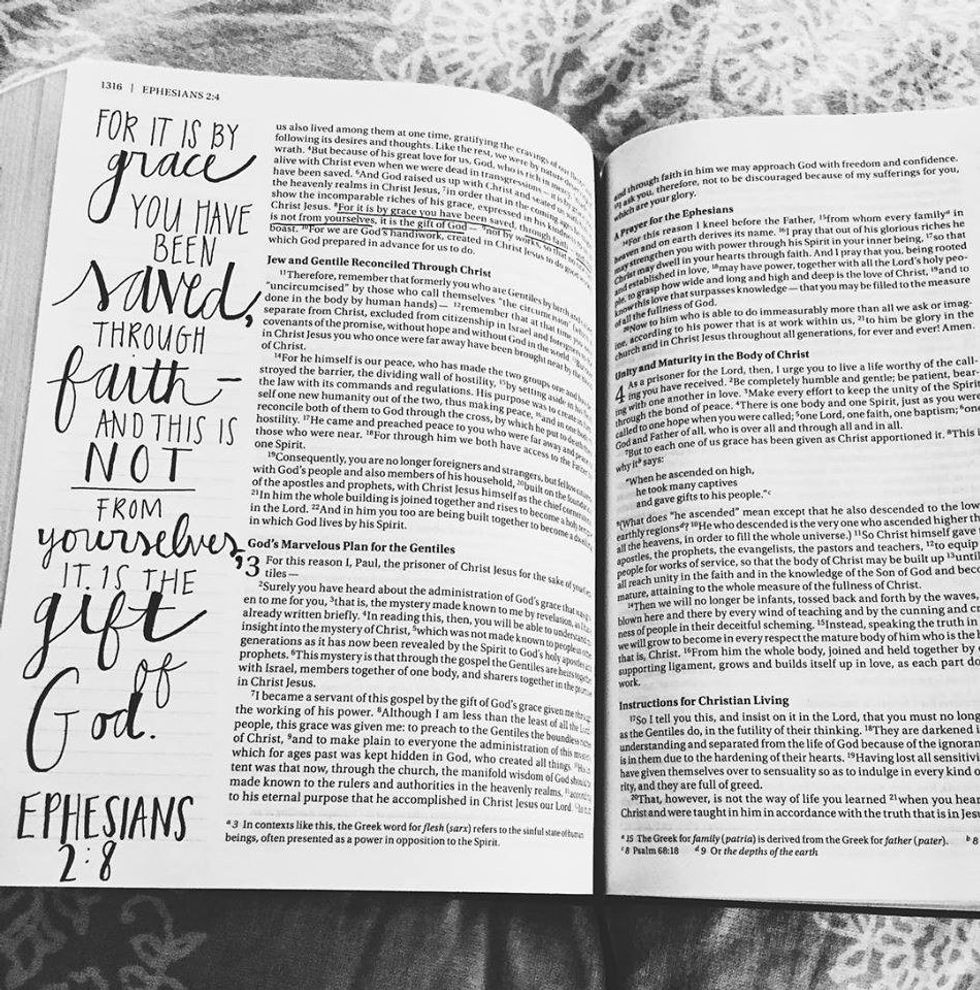 1316 | EPHESIANS 2:4
FOR IT IS BY
grace
YOU HAVE
BEEN
saved,
THROUGH
faith –
AND THIS IS
NOT
FROM
yourselves,
IT IS THE
gift
of
God.
EPHESIANS
2:8
us also lived among them at one time, gratifying the cravings of
following its desires and thoughts. Like the rest, we were by nature
wrath. ⁴But because of his great love for us, God, who is rich in
alive with Christ even when we were dead in transgressions—it is by
have been saved. ⁶And God raised us up with Christ and seated us with
the heavenly realms in Christ Jesus, ⁷in order that in the coming ages
show the incomparable riches of his grace, expressed in his kindness
Christ Jesus. ⁸For it is by grace you have been saved, through faith
is not from yourselves, it is the gift of God— ⁹not by works, so that
boast. ¹⁰For we are God's handiwork, created in Christ Jesus to do good
which God prepared in advance for us to do.
Jew and Gentile Reconciled Through Christ
¹¹Therefore, remember that formerly you who are Gentiles by birth and
"uncircumcised" by those who call themselves "the circumcision" (which
done in the body by human hands)— ¹²remember that at that time you
separate from Christ, excluded from citizenship in Israel and foreigners
covenants of the promise, without hope and without God in the world.
in Christ Jesus you who once were far away have been brought near by the
of Christ.
¹⁴For he himself is our peace, who has made the two groups one and
stroyed the barrier, the dividing wall of hostility, ¹⁵by setting aside
the law with its commands and regulations. His purpose was to create
self one new humanity out of the two, thus making peace, ¹⁶and in one
reconcile both of them to God through the cross, by which he put to death
hostility. ¹⁷He came and preached peace to you who were far away and peace
those who were near. ¹⁸For through him we both have access to the Father
one Spirit.
¹⁹Consequently, you are no longer foreigners and strangers, but fellow
with God's people and also members of his household, ²⁰built on the
of the apostles and prophets, with Christ Jesus himself as the chief
²¹In him the whole building is joined together and rises to become a holy
in the Lord. ²²And in him you too are being built together to become a
in which God lives by his Spirit.
God's Marvelous Plan for the Gentiles
3 For this reason I, Paul, the prisoner of Christ Jesus for the sake of
tiles—
²Surely you have heard about the administration of God's grace that
en to me for you, ³that is, the mystery made known to me by revelation,
already written briefly. ⁴In reading this, then, you will be able to understand
insight into the mystery of Christ, ⁵which was not made known to people
generations as it has now been revealed by the Spirit to God's holy apostles
prophets. ⁶This mystery is that through the gospel the Gentiles are heirs
with Israel, members together of one body, and sharers together in the
in Christ Jesus.
⁷I became a servant of this gospel by the gift of God's grace given me
the working of his power. ⁸Although I am less than the least of all the
people, this grace was given me: to preach to the Gentiles the boundless
of Christ, ⁹and to make plain to everyone the administration of this
which for ages past was kept hidden in God, who created all things.
tent was that now, through the church, the manifold wisdom of God should
made known to the rulers and authorities in the heavenly realms,
to his eternal purpose that he accomplished in Christ Jesus our Lord.
ᵃ3 In contexts like this, the Greek word for flesh (sarx) refers to the sinful state of human
beings, often presented as a power in opposition to the Spirit.
and through faith in him we may approach God with freedom and confidence.
ask you, therefore, not to be discouraged because of my sufferings for you,
which are your glory.
A Prayer for the Ephesians
¹⁴For this reason I kneel before the Father, ¹⁵from whom every familyᵃ in
heaven and on earth derives its name. ¹⁶I pray that out of his glorious riches he
may strengthen you with power through his Spirit in your inner being, ¹⁷so that
Christ may dwell in your hearts through faith. And I pray that you, being rooted
and established in love, ¹⁸may have power, together with all the Lord's holy peo-
ple, to grasp how wide and long and high and deep is the love of Christ, ¹⁹and to
know this love that surpasses knowledge—that you may be filled to the measure
of all the fullness of God.
²⁰Now to him who is able to do immeasurably more than all we ask or imag-
ine, according to his power that is at work within us, ²¹to him be glory in the
church and in Christ Jesus throughout all generations, for ever and ever! Amen
Unity and Maturity in the Body of Christ
4 As a prisoner for the Lord, then, I urge you to live a life worthy of the call-
ing you have received. ²Be completely humble and gentle; be patient, bear-
ing with one another in love. ³Make every effort to keep the unity of the Spirit
through the bond of peace. ⁴There is one body and one Spirit, just as you were
called to one hope when you were called; ⁵one Lord, one faith, one baptism;
God and Father of all, who is over all and through all and in all.
⁷But to each one of us grace has been given as Christ apportioned it. ⁸This i
why itᵇ says:
"When he ascended on high,
he took many captives
and gave gifts to his people."ᶜ
⁹(What does "he ascended" mean except that he also descended to the low
earthly regionsᵈ? ¹⁰He who descended is the very one who ascended higher th
all the heavens, in order to fill the whole universe.) ¹¹So Christ himself gave
apostles, the prophets, the evangelists, the pastors and teachers, ¹²to equip
people for works of service, so that the body of Christ may be built up ¹³until
all reach unity in the faith and in the knowledge of the Son of God and beco
mature, attaining to the whole measure of the fullness of Christ.
¹⁴Then we will no longer be infants, tossed back and forth by the waves,
blown here and there by every wind of teaching and by the cunning and c
ness of people in their deceitful scheming. ¹⁵Instead, speaking the truth in
we will grow to become in every respect the mature body of him who is the
that is, Christ. ¹⁶From him the whole body, joined and held together by
supporting ligament, grows and builds itself up in love, as each part do
work.
Instructions for Christian Living
¹⁷So I tell you this, and insist on it in the Lord, that you must no long
as the Gentiles do, in the futility of their thinking. ¹⁸They are darkened i
understanding and separated from the life of God because of the ignoran
is in them due to the hardening of their hearts. ¹⁹Having lost all sensitivi
have given themselves over to sensuality so as to indulge in every kind o
rity, and they are full of greed.
²⁰That, however, is not the way of life you learned ²¹when you hea
Christ and were taught in him in accordance with the truth that is in Jesu
ᵃ15 The Greek for family (patria) is derived from the Greek for father (pater). ᵇ8
ᶜ8 Psalm 68:18 ᵈ9 Or the depths of the earth